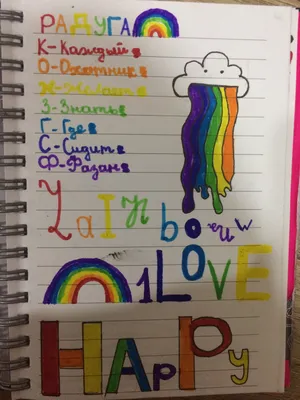 РАДУГА
К-Каждый
О-Охотник
Ж-Желает
З-Знать
Г-Где
С-Сидит
Ф-Фазан
bow
1LOVE
HAPPy